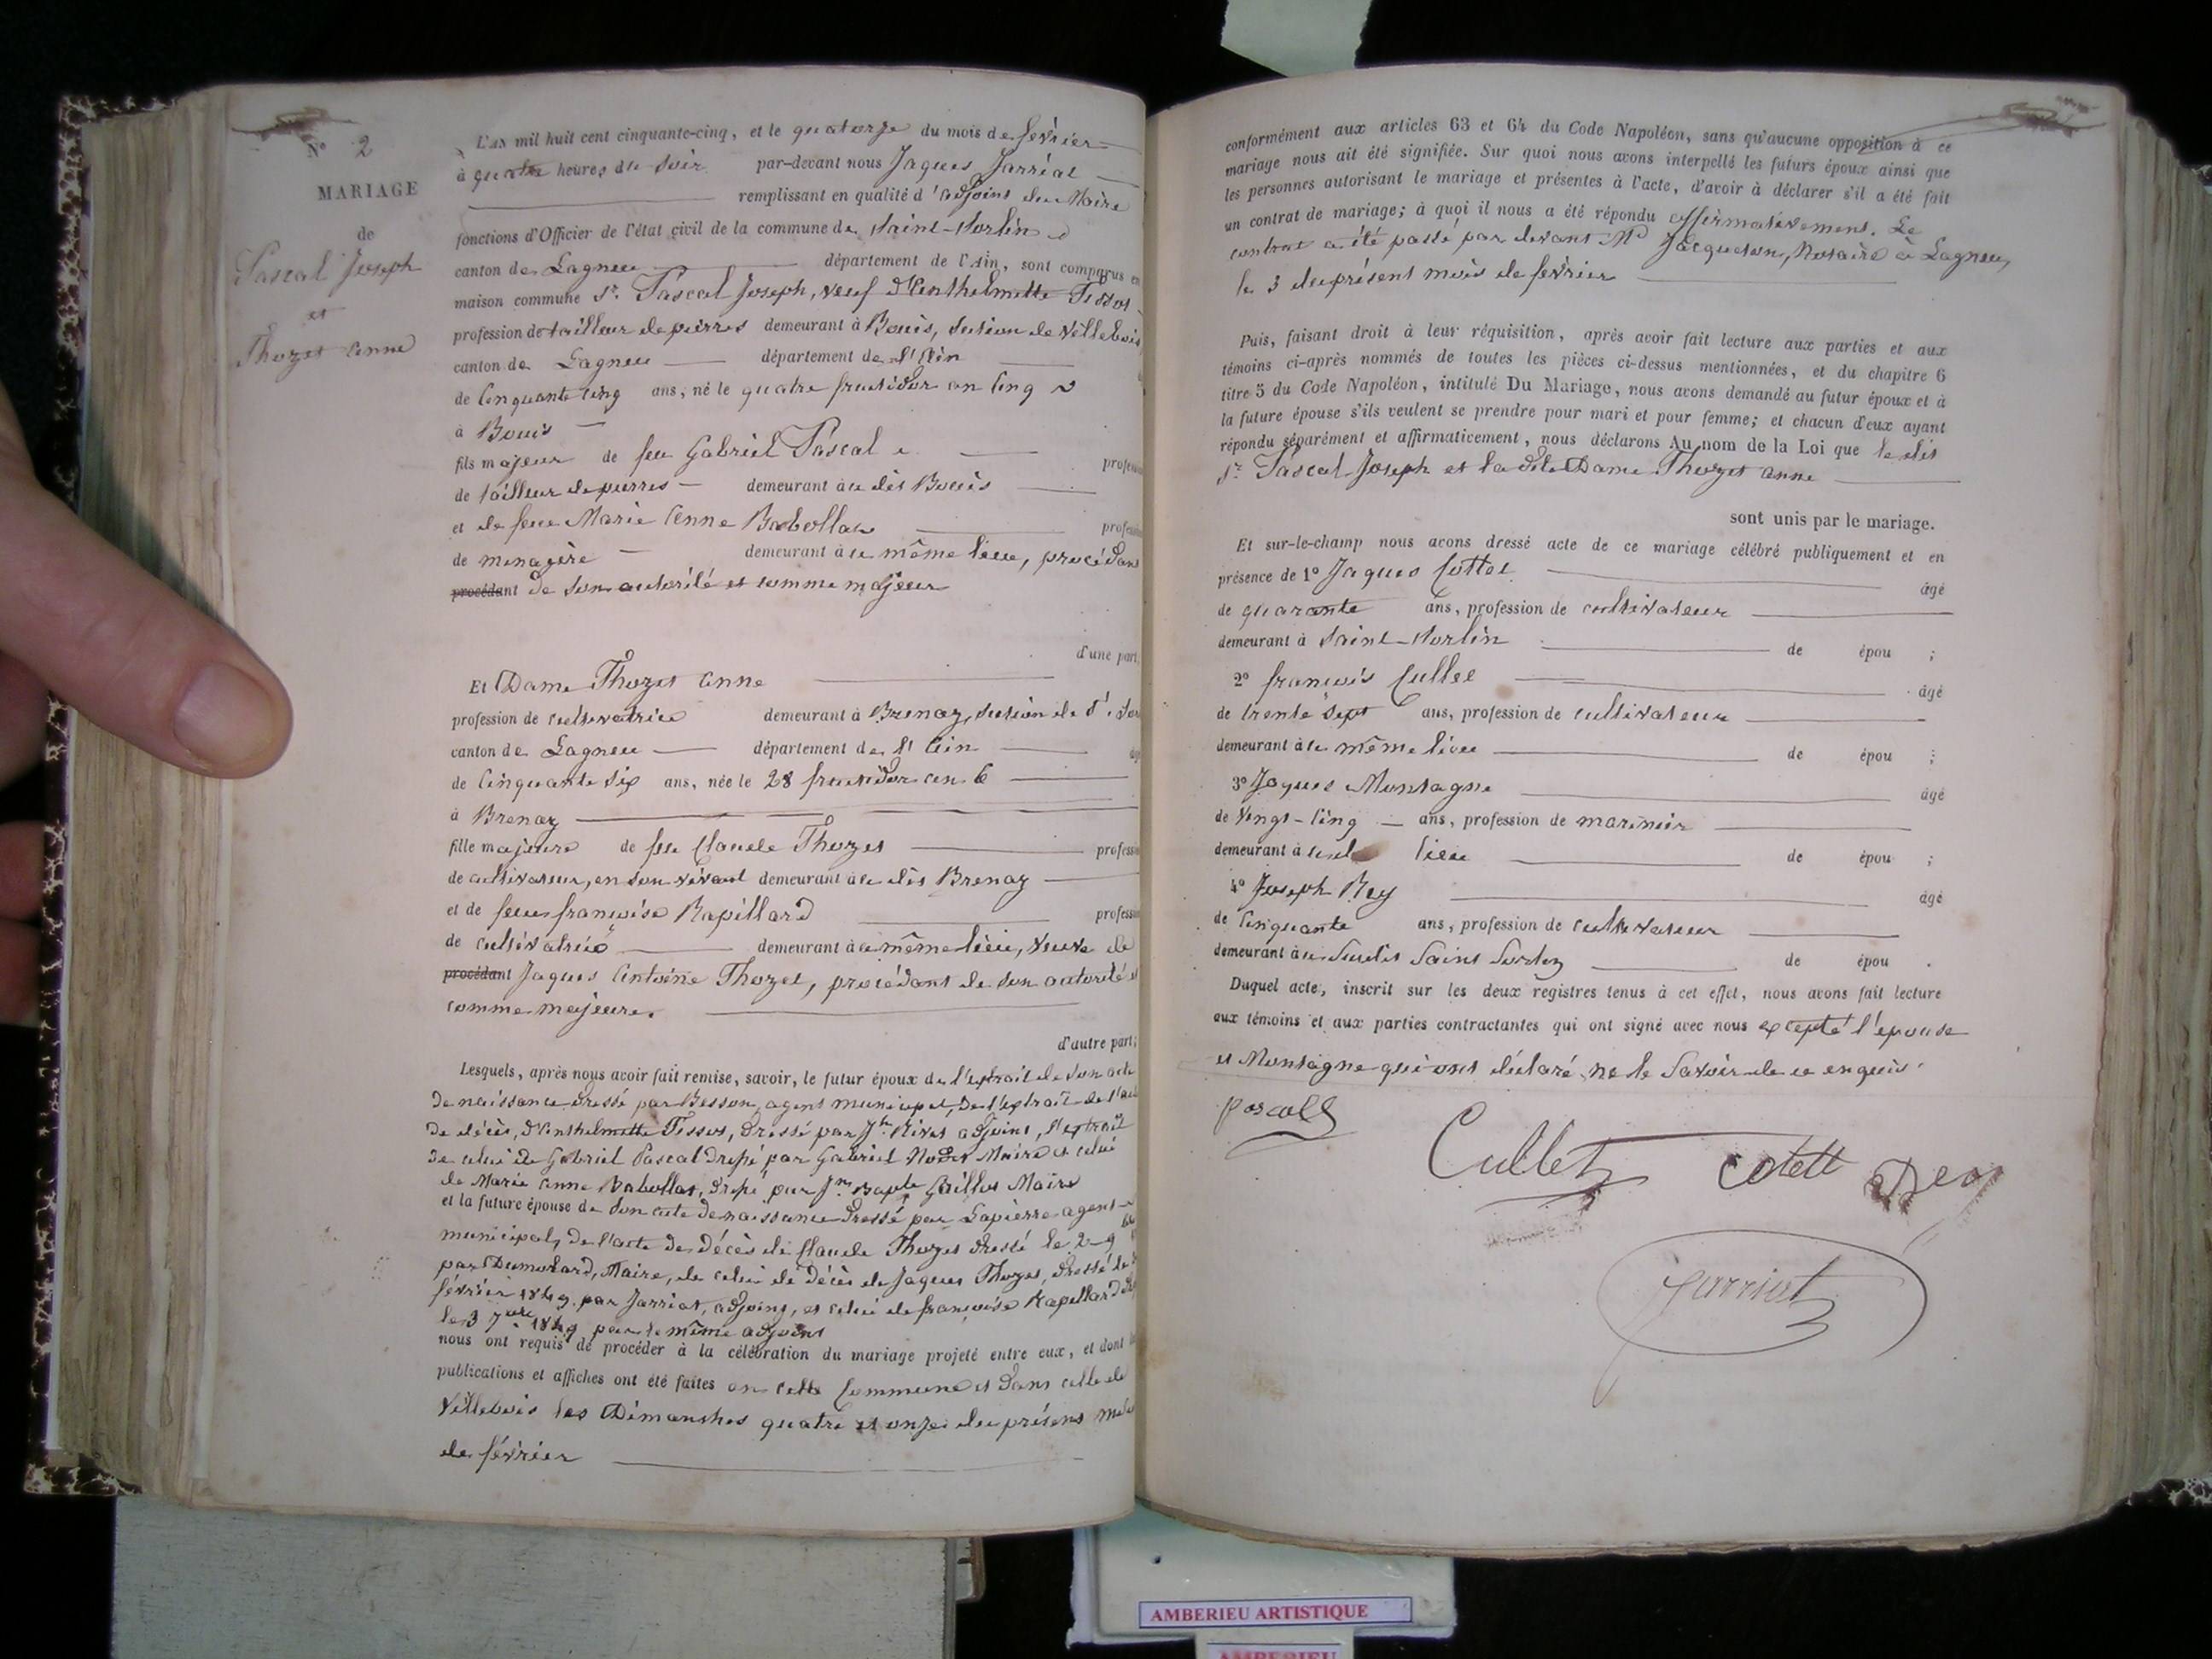 N° 2
MARIAGE
de
Pascal Joseph
et
Thozet Anne
L'AN mil huit cent cinquante-cinq, et le quatorze du mois de février
à quatre heures du soir par-devant nous Jaques Jarriat
remplissant en qualité d'adjoint du Maire
fonctions d'Officier de l'état civil de la commune de Saint-Sorlin
canton de Lagneu département de l'Ain, sont comparus en
maison commune Sr. Pascal Joseph, veuf d'Enthelmette Tissot
profession de tailleur de pierres demeurant à Bouis, section de Villebois
canton de Lagneu département de l'Ain
de Cinquante cinq ans, né le quatre fructidor an Cinq
à Bouis
fils majeur de feu Gabriel Pascal
de tailleur de pierres demeurant à ce dit Bouis
et de feue Marie Anne Babollat
de menagère demeurant à ce même lieu, procédant
procédant de son autorité et comme majeur
d'une part,
Et Dame Thozet Anne
profession de cultivatrice demeurant à Brenaz, section de St. Sor
canton de Lagneu département de l'Ain
de Cinquante six ans, née le 28 fructidor an 6
à Brenaz
fille majeure de feu Claude Thozet
de cultivateur, en son vivant demeurant à ce dit Brenaz
et de feue françoise Rapillard
de cultivatrice demeurant à ce même lieu, veuve de
procédant Jaques Antoine Thozet, procédant de son autorité et
comme majeure.
d'autre part;
Lesquels, après nous avoir fait remise, savoir, le futur époux de l'extrait de son acte
de naissance dressé par Besson, agent municipal, de l'extrait de l'acte
de décès, d'Enthelmette Tissot, dressé par Jh. Rivet adjoint, l'extrait
de celui de Gabriel Pascal dressé par Gabriel Maire et celui
de Marie Anne Babollat, dressé par Jn Bapte Gaillot Maire
et la future épouse de son acte de naissance dressé par Lapierre agent
municipal, de l'acte de décès de Claude Thozet dressé le 2
par Dumolard, Maire, de celui de décès de Jaques Thozet, dressé le
février 1849 par Jarriat, adjoint, et celui de françoise Rapillard
le 3 7bre 1849 par le même adjoint
nous ont requis de procéder à la célébration du mariage projeté entre eux, et dont
publications et affiches ont été faites en cette Commune et dans celle de
Villebois les Dimanches quatre et onze du présent mois
de février
conformément aux articles 63 et 64 du Code Napoléon, sans qu'aucune opposition à ce
mariage nous ait été signifiée. Sur quoi nous avons interpellé les futurs époux ainsi que
les personnes autorisant le mariage et présentes à l'acte, d'avoir à déclarer s'il a été fait
un contrat de mariage; à quoi il nous a été répondu affirmativement. Le
contrat a été passé par devant Me Jacqueson, Notaire à Lagneu,
le 3 du présent mois de février
Puis, faisant droit à leur réquisition, après avoir fait lecture aux parties et aux
témoins ci-après nommés de toutes les pièces ci-dessus mentionnées, et du chapitre 6
titre 5 du Code Napoléon, intitulé Du Mariage, nous avons demandé au futur époux et à
la future épouse s'ils veulent se prendre pour mari et pour femme; et chacun d'eux ayant
répondu séparément et affirmativement, nous déclarons Au nom de la Loi que le dit
Sr. Pascal Joseph et la dite Dame Thozet Anne
sont unis par le mariage.
Et sur-le-champ nous avons dressé acte de ce mariage célébré publiquement et en
présence de 1° Jaques Cottet âgé
de quarante ans, profession de cultivateur
demeurant à Saint-Sorlin de épou ;
2° françois Cullet âgé
de trente sept ans, profession de cultivateur
demeurant à ce même lieu de épou ;
3° Jaques Montagne âgé
de vingt-cinq ans, profession de marinier
demeurant à lieu de épou ;
4° Joseph Rey âgé
de Cinquante ans, profession de cultivateur
demeurant à Saint Sorlin de épou .
Duquel acte, inscrit sur les deux registres tenus à cet effet, nous avons fait lecture
aux témoins et aux parties contractantes qui ont signé avec nous excepté l'épouse
et Montagne qui ont déclaré ne le Savoir de ce enquis.
pascal
Cullet Cotett Rey
Jarriat
AMBERIEU ARTISTIQUE
AMBERIEU